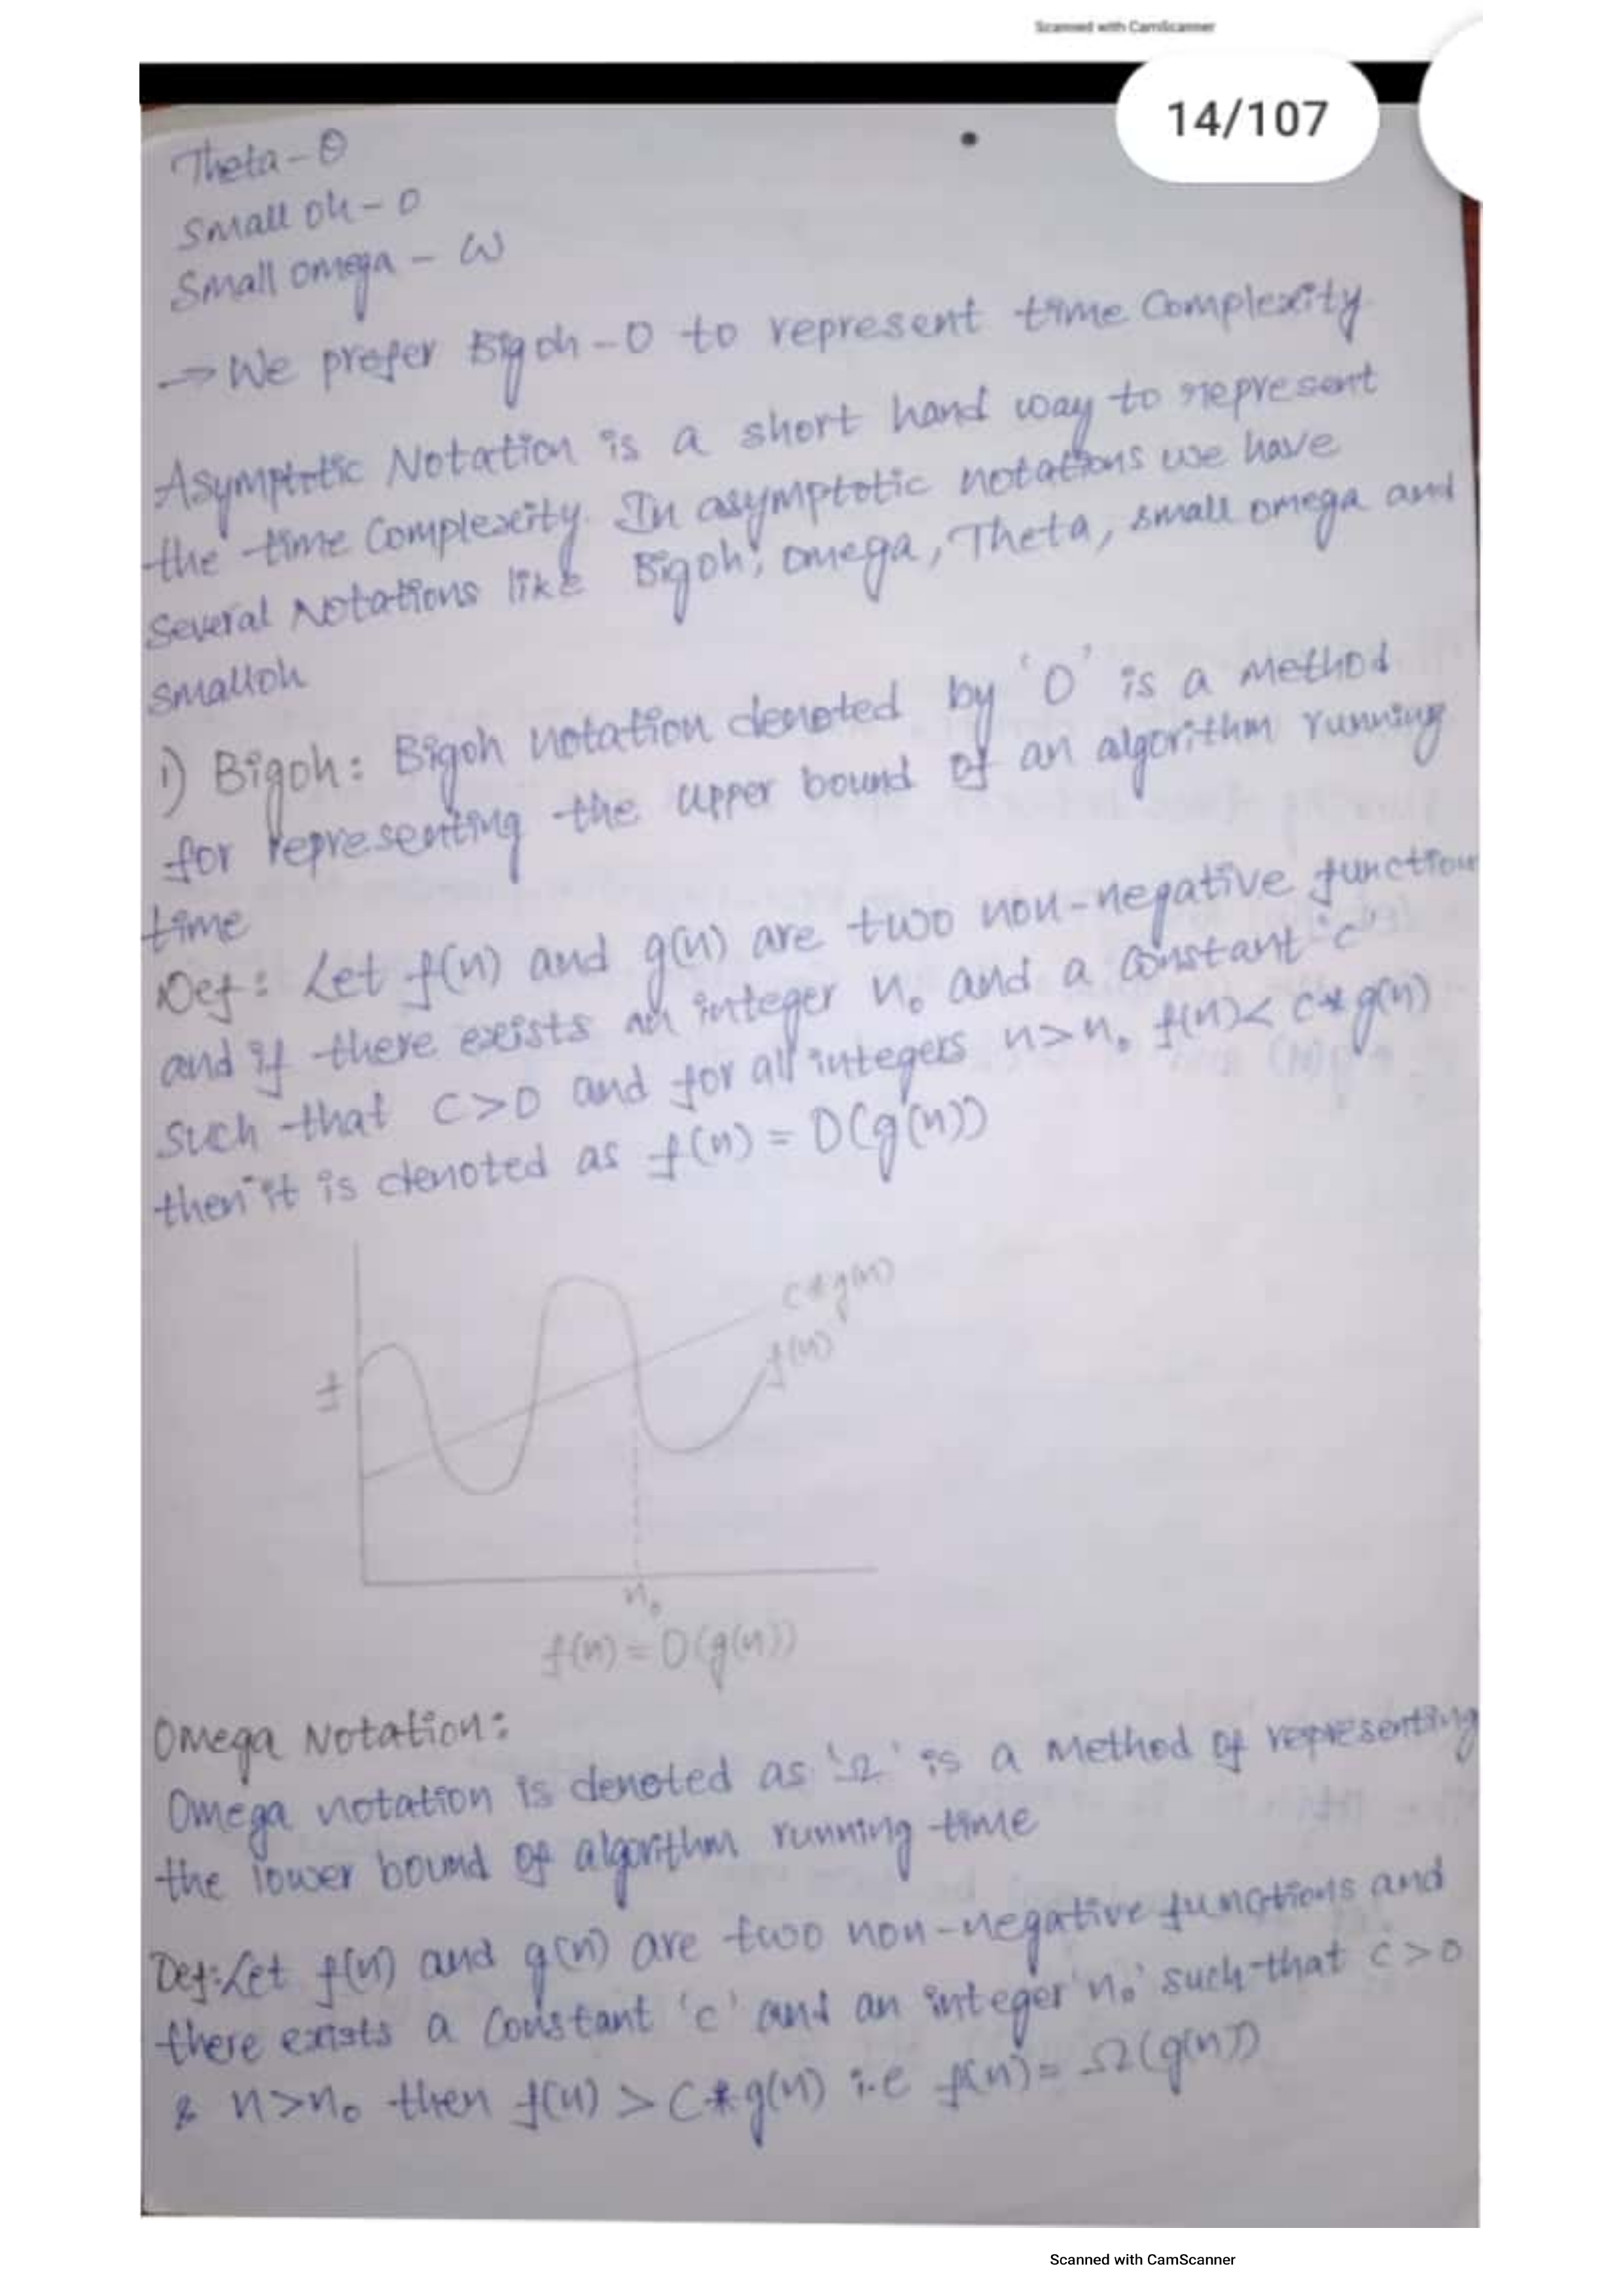 Scanned with CamScanner
14/107
Theta - Θ
Small oh - o
Small omega - ω
→ We prefer Bigoh - O to represent time Complexity
Asymptotic Notation is a short hand way to represent
the time Complexity. In asymptotic notations we have
Several Notations like Bigoh, omega, Theta, small omega and
smalloh
1) Bigoh: Bigoh notation denoted by 'O' is a Method
for representing the upper bound of an algorithm running
time
Def: Let f(n) and g(n) are two non-negative function
and if there exists an integer n₀ and a constant 'c'
such that C>0 and for all integers n>n₀ f(n)< c*g(n)
then it is denoted as f(n) = O(g(n))
c*g(n)
f(n)
t
n₀
f(n) = O(g(n))
Omega Notation:
Omega notation is denoted as 'Ω' is a Method of representing
the lower bound of algorithm running time
Def: Let f(n) and g(n) are two non-negative functions and
there exists a Constant 'c' and an integer 'n₀' such that c>0
& n>n₀ then f(n) > C*g(n) i.e f(n) = Ω(g(n))
Scanned with CamScanner